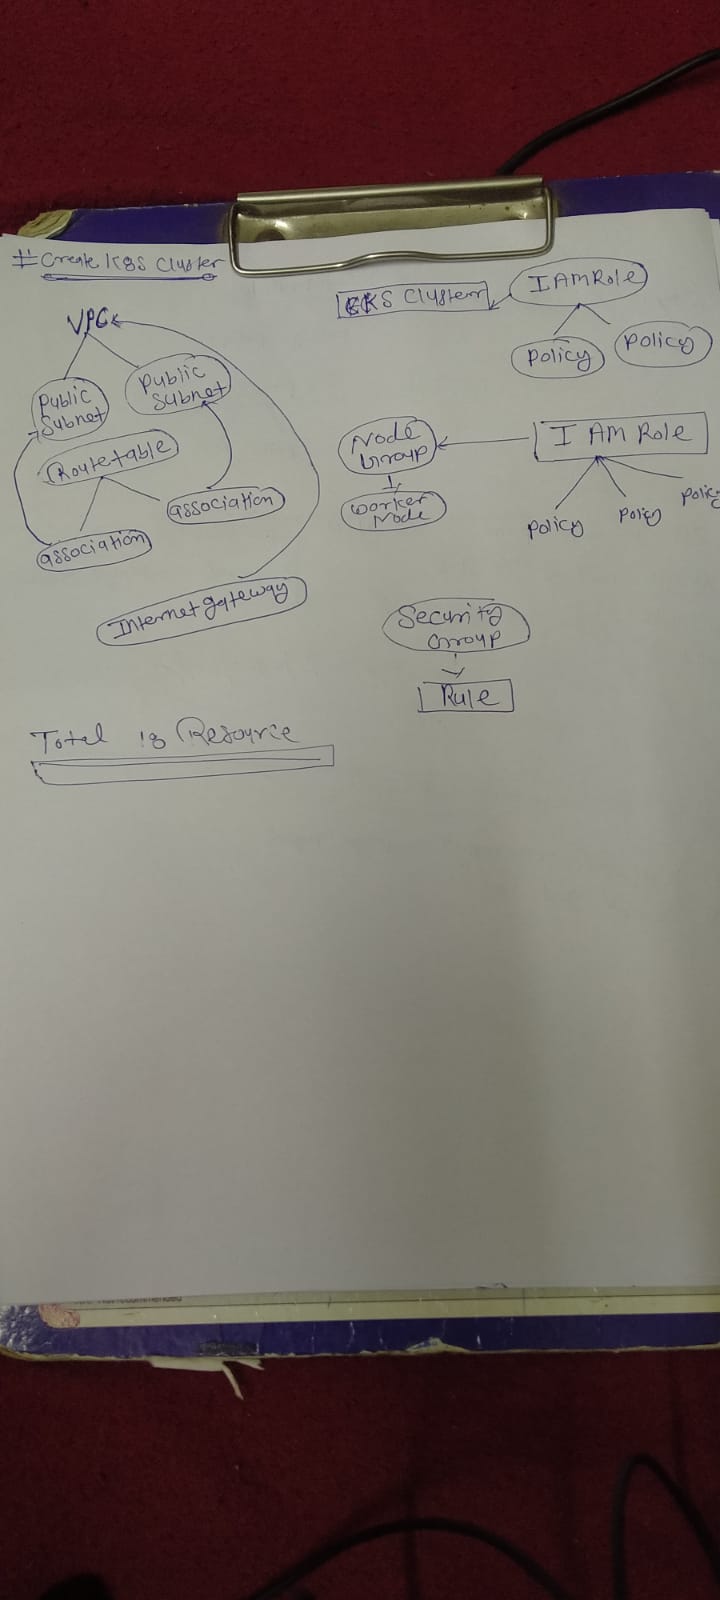 # Create K8S Cluster
VPC
Public
Subnet
Public
Subnet
Routetable
association
association
Internet gateway
Total 18 Resource
EKS Cluster
IAM Role
Policy
Policy
Node
Group
Worker
Node
I AM Role
Policy
Policy
Policy
Security
Group
Rule